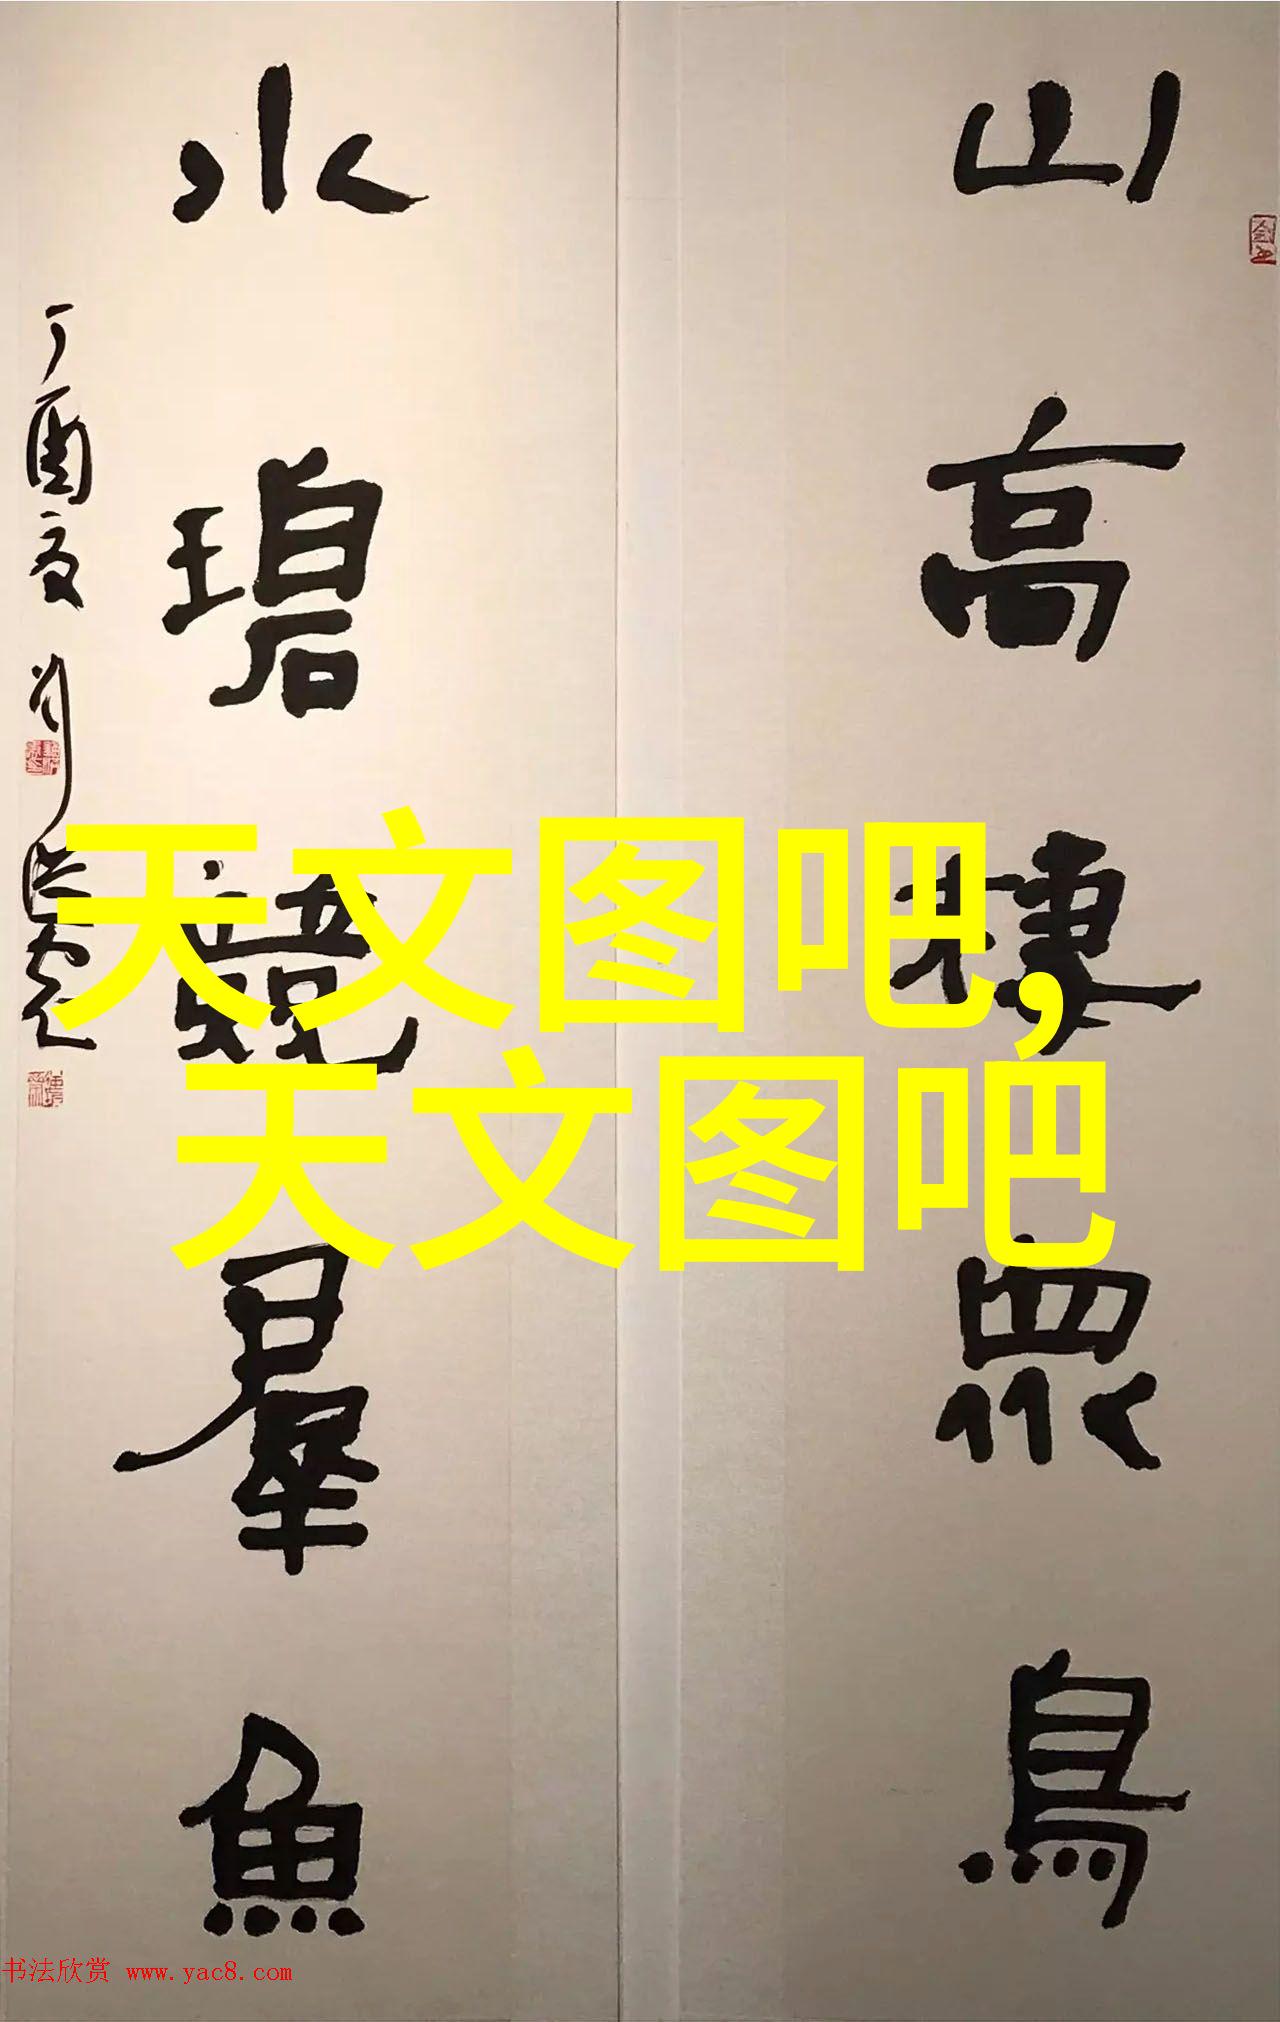 山高棲眾鳥
水碧競羣魚
丁酉夏
天文图吧,
天文图吧
书法欣赏 www.yac8.com